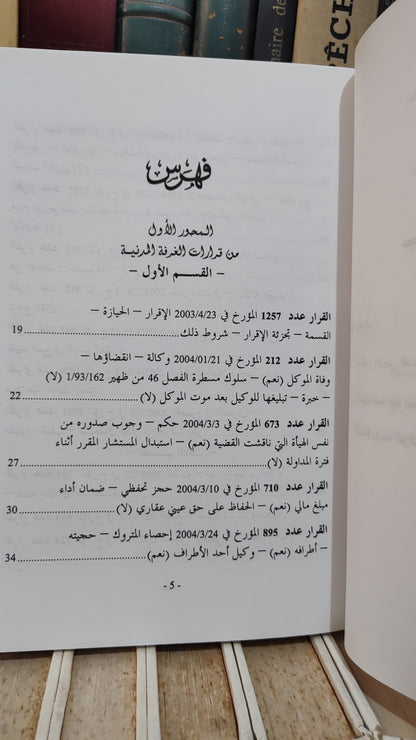 فهرس
المحور الأول
من قرارات الغرفة المدنية
– القسم الأول –
القرار عدد 1257 المؤرخ في 2003/4/23 الإقرار – الحيازة –
القسمة – تجزئة الإقرار – شروط ذلك..............................19
القرار عدد 212 المؤرخ في 2004/01/21 وكالة – انقضاؤها –
وفاة الموكل (نعم) – سلوك مسطرة الفصل 46 من ظهير 1/93/162 (لا)
– خبرة – تبليغها للوكيل بعد موت الموكل (لا)....................22
القرار عدد 673 المؤرخ في 2004/3/3 حكم – وجوب صدوره من
نفس الهيأة التي ناقشت القضية (نعم) – استبدال المستشار المقرر أثناء
فترة المداولة (لا)..............................27
القرار عدد 710 المؤرخ في 2004/3/10 حجز تحفظي – ضمان أداء
مبلغ مالي (نعم) – الحفاظ على حق عيني عقاري (لا)...............30
القرار عدد 895 المؤرخ في 2004/3/24 إحصاء المتروك – حجيته
– أطرافه (نعم) – وكيل أحد الأطراف (نعم)....................34
- 5 -